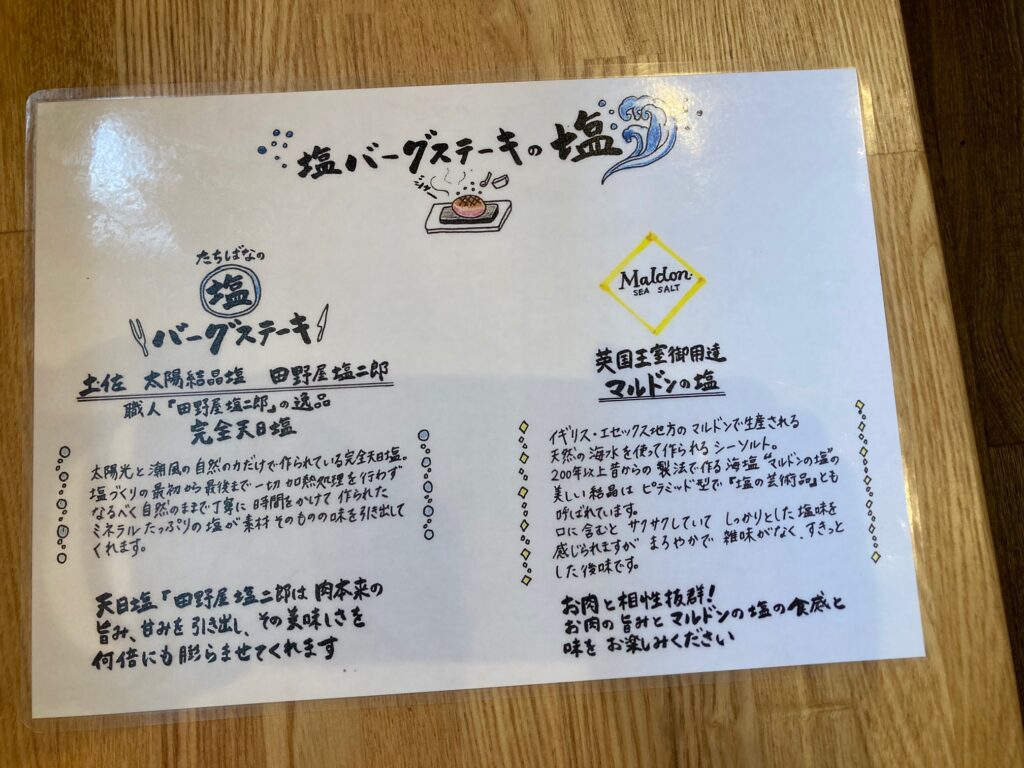 塩バーグステーキの塩
ジュー
たちばなの
塩
バーグステーキ
土佐 太陽結晶塩 田野屋塩二郎
職人「田野屋塩二郎」の逸品
完全天日塩
太陽光と潮風の自然の力だけで作られている完全天日塩。
塩づくりの最初から最後まで一切加熱処理を行わず
なるべく自然のままで丁寧に時間をかけて作られた
ミネラルたっぷりの塩が素材そのものの味を引き出して
くれます。
天日塩「田野屋塩二郎は肉本来の
旨み、甘みを引き出し、その美味しさを
何倍にも膨らませてくれます
Maldon
SEA SALT
英国王室御用達
マルドンの塩
イギリス・エセックス地方のマルドンで生産される
天然の海水を使って作られるシーソルト。
200年以上昔からの製法で作る海塩"マルドンの塩"の
美しい結晶はピラミッド型で『塩の芸術品』とも
呼ばれています。
口に含むとサクサクしていてしっかりとした塩味を
感じられますがまろやかで雑味がなく、すきっと
した後味です。
お肉と相性抜群!
お肉の旨みとマルドンの塩の食感と
味をお楽しみください